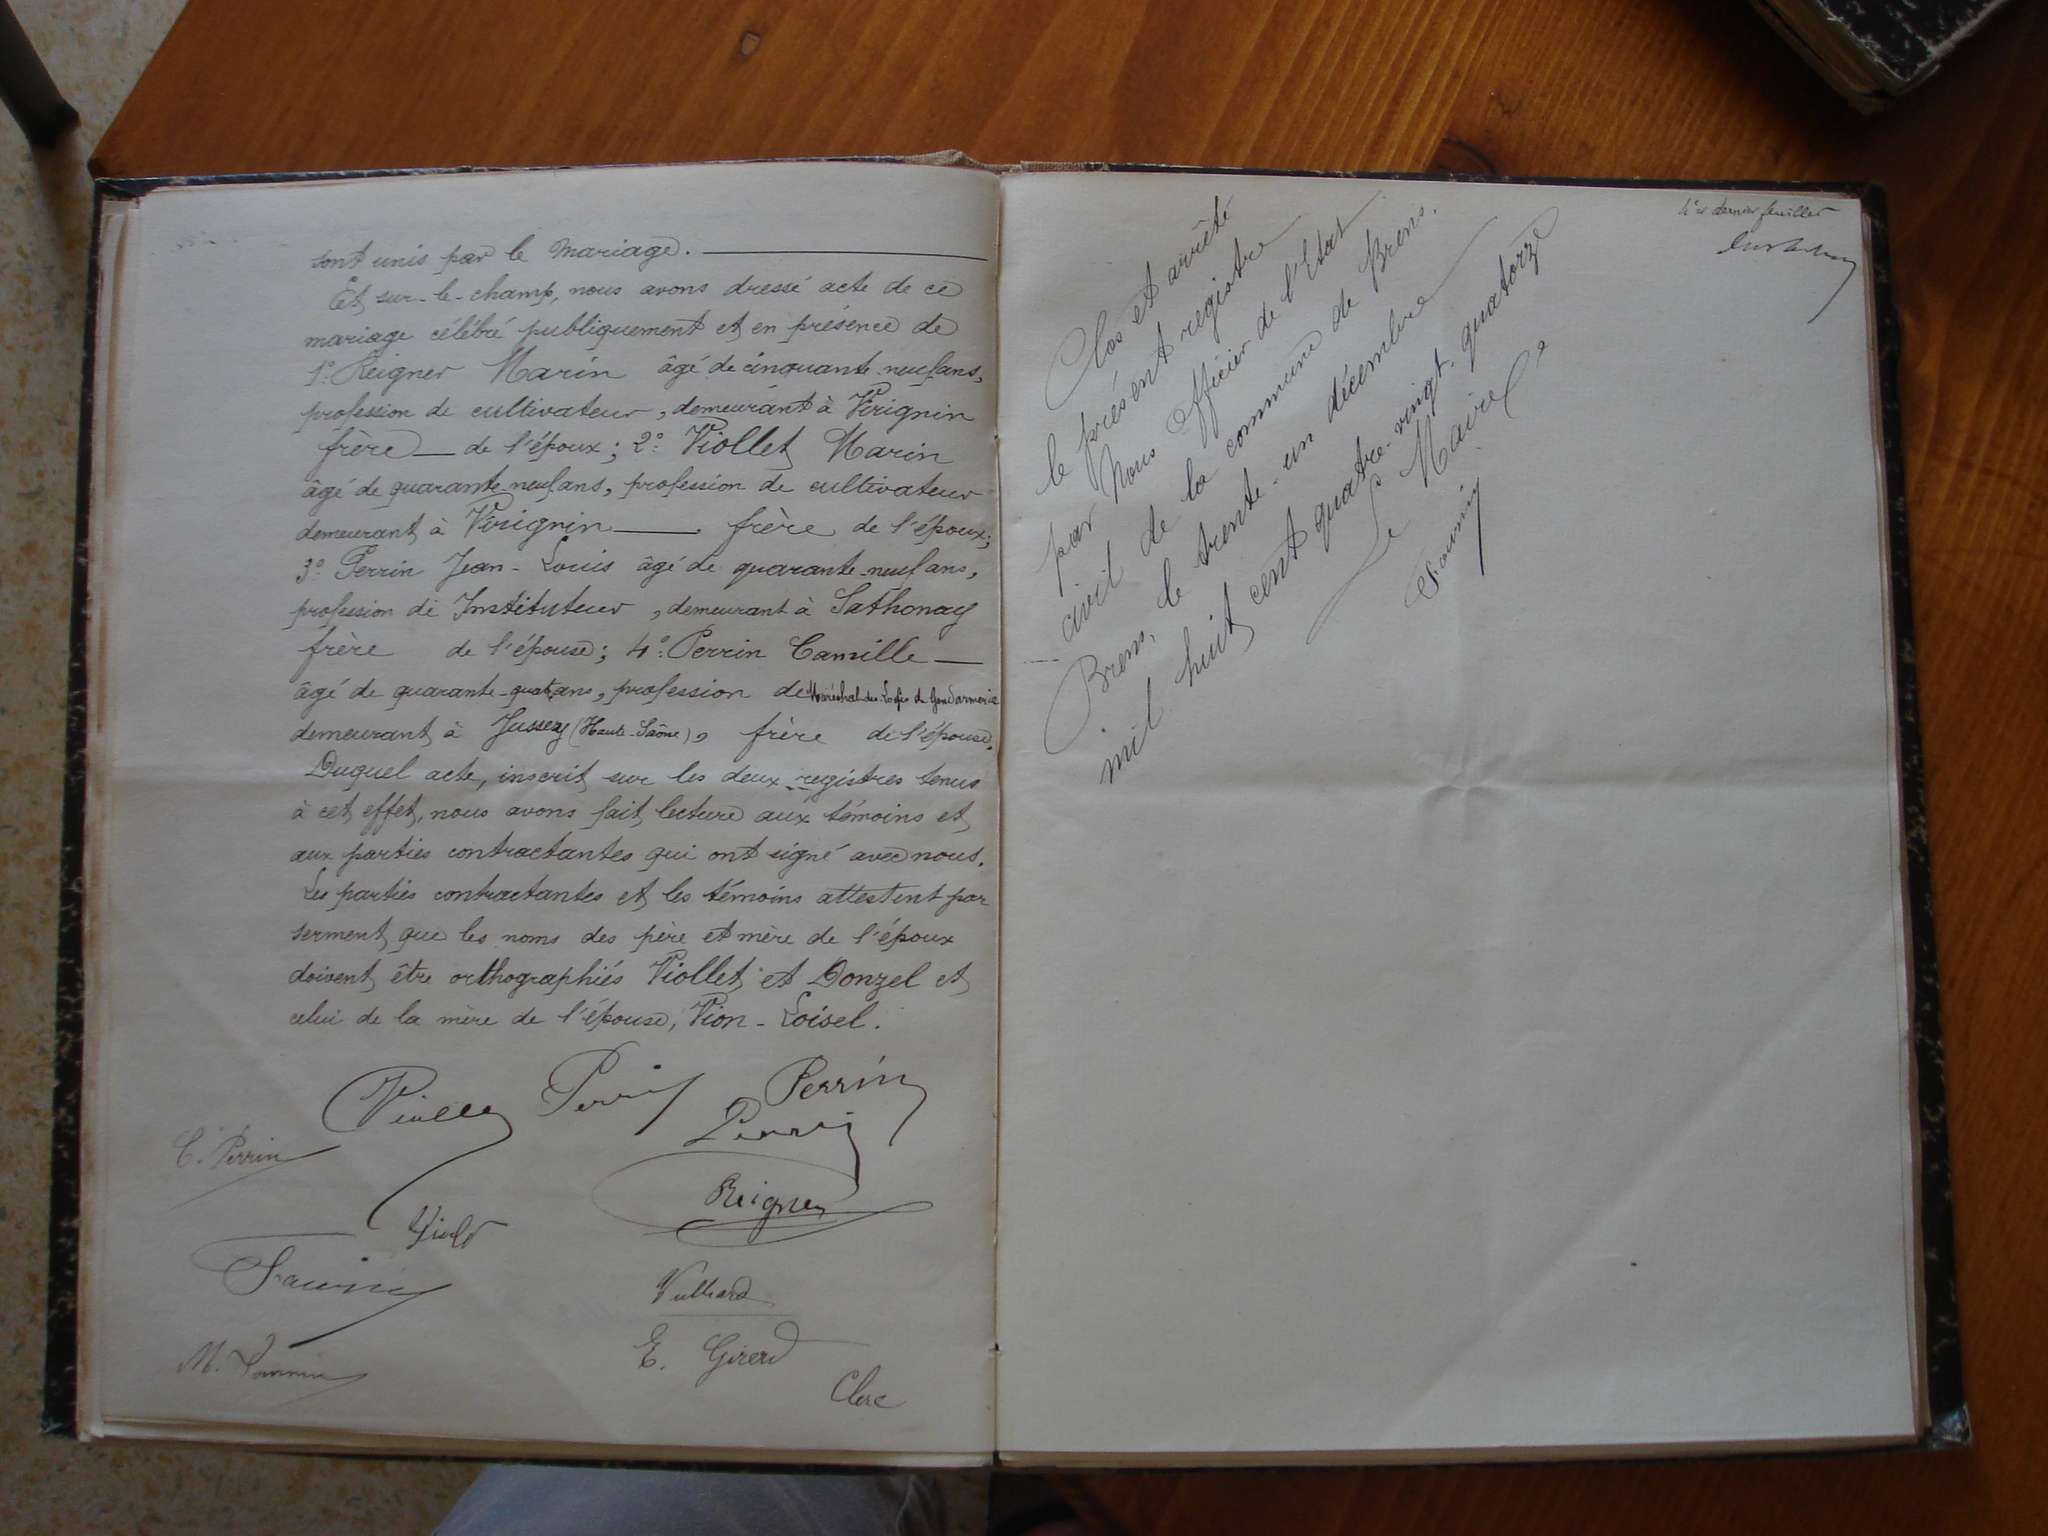 sont unis par le mariage.
Et sur-le-champ, nous avons dressé acte de ce
mariage célébré publiquement et en présence de
1° Reigner Marin âgé de cinquante neuf ans,
profession de cultivateur, demeurant à Virignin
frère de l'époux; 2° Viollet Marin
âgé de quarante neuf ans, profession de cultivateur
demeurant à Virignin frère de l'époux;
3° Perrin Jean-Louis âgé de quarante-neuf ans,
profession de Instituteur, demeurant à Sathonay
frère de l'épouse; 4° Perrin Camille
âgé de quarante-quat ans, profession de Maréchal des Logis de Gendarmerie
demeurant à Jussey (Haute-Saône), frère de l'épouse.
Duquel acte, inscrit sur les deux registres tenus
à cet effet, nous avons fait lecture aux témoins et
aux parties contractantes qui ont signé avec nous.
Les parties contractantes et les témoins attestent par
serment que les noms des père et mère de l'époux
doivent être orthographiés Viollet et Donzel et
celui de la mère de l'épouse, Vion-Loisel.
Perrin
Perrin
Perrin
C. Perrin
Reigner
Vulliard
E. Girerd
Clerc
4e et dernier feuillet
Clos et arrêté
le présent registre
par Nous Officier de l'Etat
civil de la commune de Brens.
Brens, le trente-un décembre
mil huit cent quatre-vingt-quatorze
Le Maire,